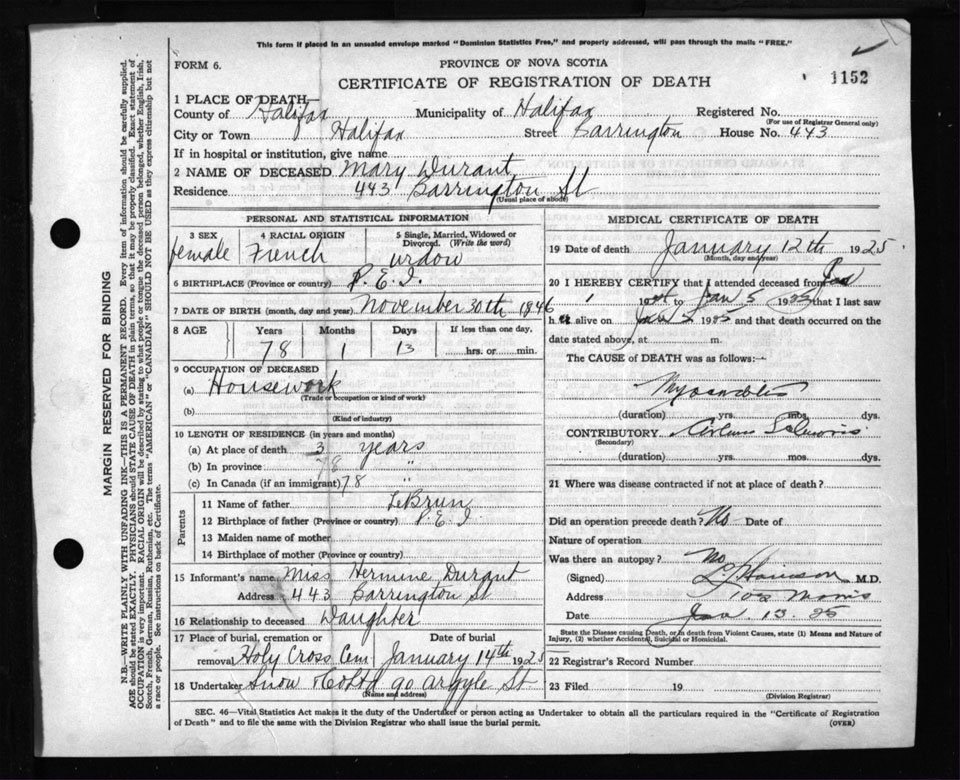 This form if placed in an unsealed envelope marked "Dominion Statistics Free," and properly addressed, will pass through the mails "FREE."
FORM 6.
PROVINCE OF NOVA SCOTIA
CERTIFICATE OF REGISTRATION OF DEATH
1152
1 PLACE OF DEATH—
County of Halifax Municipality of Halifax Registered No.
(For use of Registrar General only)
City or Town Halifax Street Barrington House No. 443
If in hospital or institution, give name
2 NAME OF DECEASED Mary Durant
Residence 443 Barrington St
(Usual place of abode)
PERSONAL AND STATISTICAL INFORMATION
3 SEX 4 RACIAL ORIGIN 5 Single, Married, Widowed or Divorced. (Write the word)
female French widow
6 BIRTHPLACE (Province or country) P.E.I.
7 DATE OF BIRTH (month, day and year) November 30th 1846
8 AGE Years Months Days If less than one day,
78 1 13 hrs. or min.
9 OCCUPATION OF DECEASED
(a) Housework
(Trade or occupation or kind of work)
(b)
(Kind of industry)
10 LENGTH OF RESIDENCE (in years and months)
(a) At place of death 3 years
(b) In province 78 "
(c) In Canada (if an immigrant) 78 "
Parents
11 Name of father LeBrun
12 Birthplace of father (Province or country) P.E.I.
13 Maiden name of mother
14 Birthplace of mother (Province or country)
15 Informant's name Miss Hermine Durant
Address 443 Barrington St
16 Relationship to deceased Daughter
17 Place of burial, cremation or removal Holy Cross Cem Date of burial January 14th 1925
18 Undertaker Snow & Co Ltd 90 Argyle St.
(Name and address)
MEDICAL CERTIFICATE OF DEATH
19 Date of death January 12th 1925
(Month, day and year)
20 I HEREBY CERTIFY that I attended deceased from
19 to Jan 5 1925 that I last saw
h er alive on Jan 5 1925 and that death occurred on the
date stated above, at m.
The CAUSE of DEATH was as follows:—
Myocarditis
(duration) yrs. mos. dys.
CONTRIBUTORY Arterio Sclerosis
(Secondary)
(duration) yrs. mos. dys.
21 Where was disease contracted if not at place of death?
Did an operation precede death? No Date of
Nature of operation
Was there an autopsy? No
(Signed) M.D.
Address 102 Morris
Date Jan. 13. 25
State the Disease causing Death, or in death from Violent Causes, state (1) Means and Nature of Injury, (2) whether Accidental, Suicidal or Homicidal.
22 Registrar's Record Number
23 Filed 19
(Division Registrar)
SEC. 46—Vital Statistics Act makes it the duty of the Undertaker or person acting as Undertaker to obtain all the particulars required in the "Certificate of Registration
of Death" and to file the same with the Division Registrar who shall issue the burial permit.
(OVER)
MARGIN RESERVED FOR BINDING
N.B.—WRITE PLAINLY WITH UNFADING INK—THIS IS A PERMANENT RECORD. Every item of information should be carefully supplied.
AGE should be stated EXACTLY. PHYSICIANS should STATE CAUSE OF DEATH in plain terms, so that it may be properly classified. Exact statement of
OCCUPATION is very important. RACIAL ORIGIN will be described by stating to what people or tongue the deceased person belonged, whether English, Irish,
Scotch, French, German, Russian, Ruthenian, etc. The terms "AMERICAN" or "CANADIAN" SHOULD NOT BE USED as they express citizenship but not
a race or people. See instructions on back of Certificate.